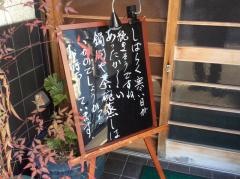 しばらく寒い日が
続きそうですね
あったか〜い
鍋焼や茶碗蒸しは
いかがでしょうか
お待ちしています。